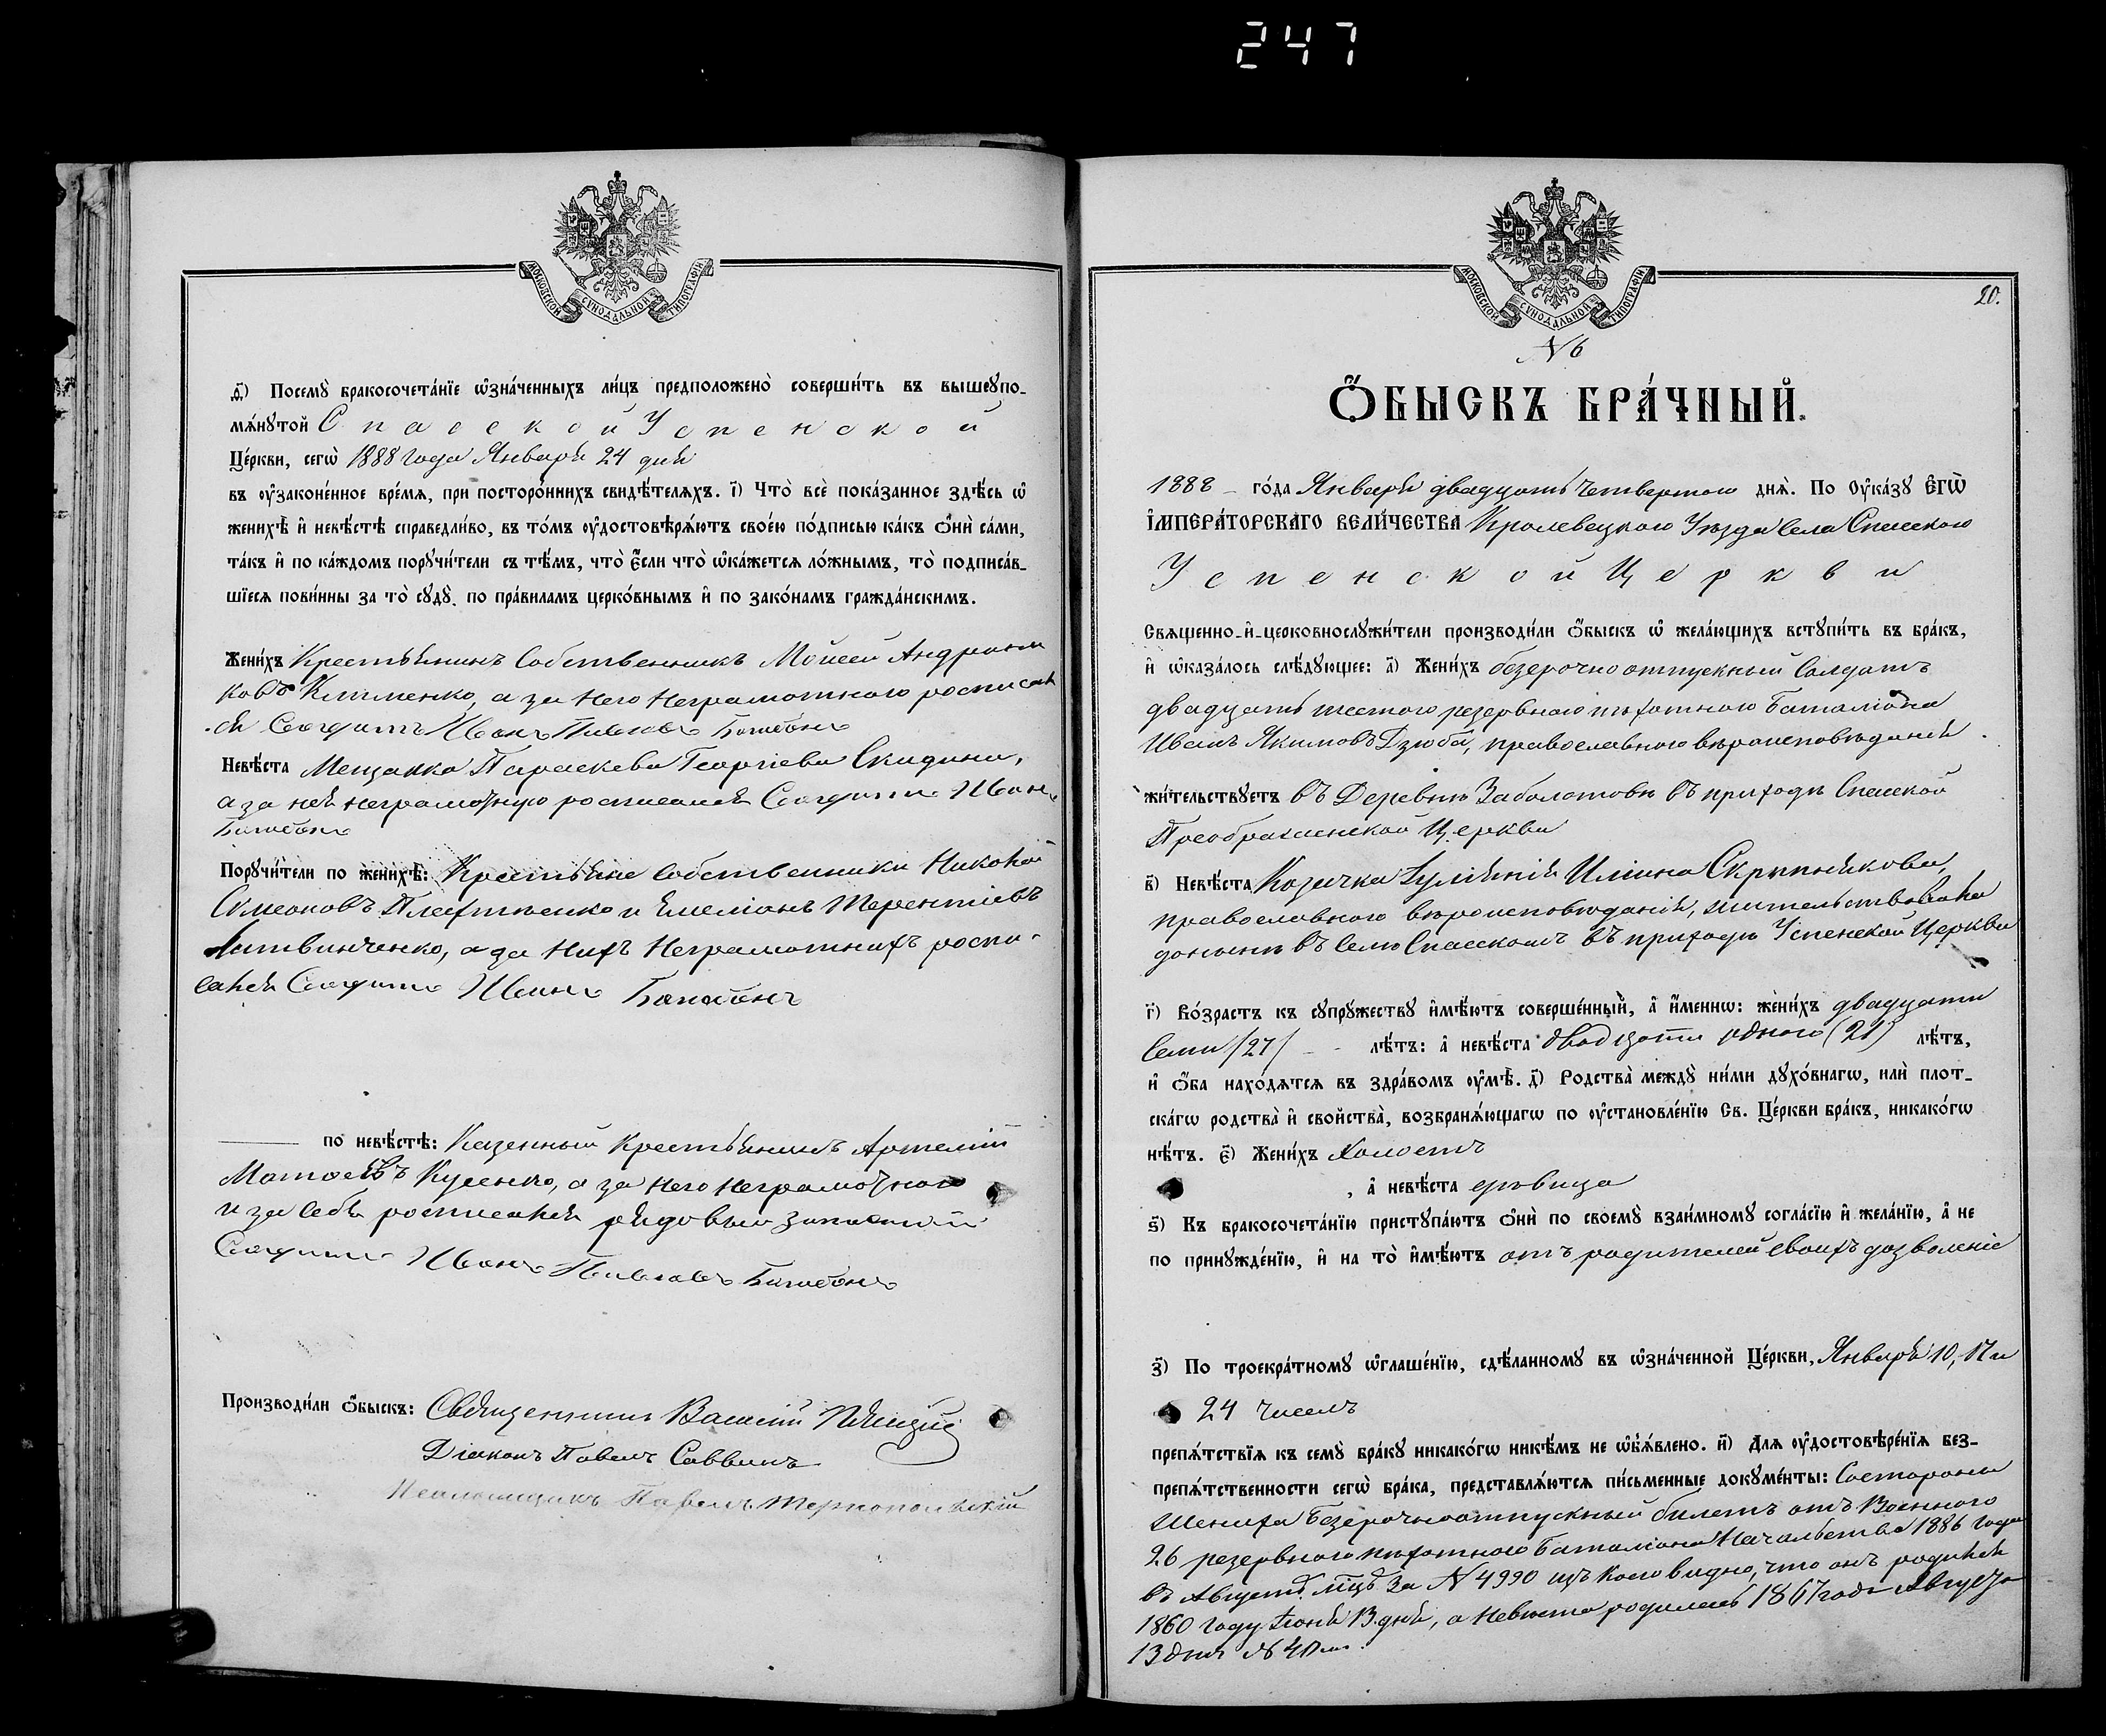 247
МОСКОВСКОЙ СѴНОДАЛЬНОЙ ТИПОГРАФІИ
д҃і) Посемꙋ̀ бракосочета́нїе ѡ҆зна́ченныхъ ли́цъ предположено̀ соверши́ть въ вышеꙋпо-
мѧ́нꙋтой Спасской Успенской
Це́ркви, сегѡ̀ 1888 года Января 24 дня
въ оу҆законе́нное вре́мѧ, при посторо́ннихъ свидѣ́телѧхъ. і҃) Что̀ всѐ пока́занное здѣ́сь ѡ҆
женихѣ̀ и҆ невѣ́стѣ справедли́во, въ то́мъ оу҆достовѣрѧ́ютъ свое́ю по́дписью ка́къ ѻ҆нѝ са́ми,
та́къ и҆ по ка́ждомъ порꙋчи́тели съ тѣ́мъ, что̀ є҆́сли что̀ ѡ҆ка́жетсѧ ло́жнымъ, то̀ подписа́в-
шїесѧ пови́нны за то̀ сꙋдꙋ̀ по пра́виламъ церко́внымъ и҆ по зако́намъ гражда́нскимъ.
Жени́хъ Крестьянинъ Собственникъ Моисей Андрони
ковъ Клименко, а за него неграмотного росписал
ся Солдатъ Иванъ Павловъ
Невѣ́ста Мещанка Параскева Георгіева Скидина,
а за нея неграмотную росписался Солдатъ Иванъ
Порꙋчи́тели по женихѣ̀: Крестьяне Собственники Николай
Симеоновъ и Емеліанъ Терентіевъ
Литвинченко, а за нихъ неграмотныхъ роспи-
сался Солдатъ Иванъ
по невѣ́стѣ: Казенный Крестьянинъ Артемій
Матѳеевъ Куценко, а за него неграмотного
и за себя росписался рядовый запасный
Солдатъ Иванъ Павловъ
Производи́ли ѻ҆́быскъ: Священникъ Василій
Діаконъ Павелъ Саввинъ
Псаломщикъ Павелъ Тернопольскій
МОСКОВСКОЙ СѴНОДАЛЬНОЙ ТИПОГРАФІИ
20.
N 6
Ѻ҆́БЫСКЪ БРА́ЧНЫЙ.
1888 го́да Января двадцать четвертого днѧ̀. По Оу҆ка́зꙋ Є҆ГѠ̀
І҆МПЕРА́ТОРСКАГО ВЕЛИ́ЧЕСТВА Кролевецкого Уѣзда села Спасского
Успенской Церкви
Свѧщенно-и҆-церковнослꙋжи́тели производи́ли ѻ҆́быскъ ѡ҆ жела́ющихъ встꙋпи́ть въ бра́къ,
и҆ ѡ҆каза́лось слѣ́дꙋющее: а҃) Жени́хъ безсрочно отпускный Солдатъ
двадцать шестого резервного пѣхотного Баталіона
Иванъ Якимовъ Дзюба, православного вѣроисповѣданія
жи́тельствꙋетъ въ Деревнѣ Заболотовѣ въ приходѣ Спасской
Преображенской Церкви
в҃) Невѣ́ста Козачка Іуліанія Иліина Скрипникова,
православного вѣроисповѣданія, жительствовала
донынѣ въ Селѣ Спасскомъ въ приходѣ Успенской Церкви
г҃) Во́зрастъ къ сꙋпрꙋ́жествꙋ и҆мѣ́ютъ соверше́нный, а҆ и҆́менно: жени́хъ двадцати
семи /27/ лѣ́тъ: а҆ невѣ́ста двадцати одного (21) лѣ́тъ,
и҆ ѻ҆́ба нахо́дѧтсѧ въ здра́вомъ оу҆мѣ̀. д҃) Родства̀ междꙋ̀ ни́ми дꙋхо́внагѡ, илѝ плот-
ска́гѡ родства̀ и҆ свойства̀, возбранѧ́ющагѡ по оу҆становле́нїю Св. Це́ркви бра́къ, никако́гѡ
нѣ́тъ. є҃) Жени́хъ холостъ
, а҆ невѣ́ста дѣвица
ѕ҃) Къ бракосочета́нїю пристꙋпа́ютъ ѻ҆нѝ по своемꙋ̀ взаи́мномꙋ согла́сїю и҆ жела́нїю, а҆ не
по принꙋжде́нїю, и҆ на то̀ и҆мѣ́ютъ отъ родителей своихъ дозволеніе
з҃) По троекра́тномꙋ ѡ҆глаше́нїю, сдѣ́ланномꙋ въ ѡ҆зна́ченной Це́ркви, Января 10, 17 и
24 чиселъ
препѧ́тствїѧ къ семꙋ̀ бра́кꙋ никако́гѡ никѣ́мъ не ѡ҆б̾ѧ́влено. и҃) Длѧ оу҆достовѣре́нїѧ без-
препѧ́тственности сегѡ̀ бра́ка, представлѧ́ютсѧ пи́сьменные докꙋме́нты: Состороны
Жениха Безсрочноотпускный билетъ отъ Военного
26 резервного пѣхотного Баталіона Начальства 1886 года
въ Августѣ мцѣ за N 4990 изъ коего видно, что онъ родился
1860 году Іюня 13 дня, а Невѣста родилась 1867 года Августа
13 дня N 40